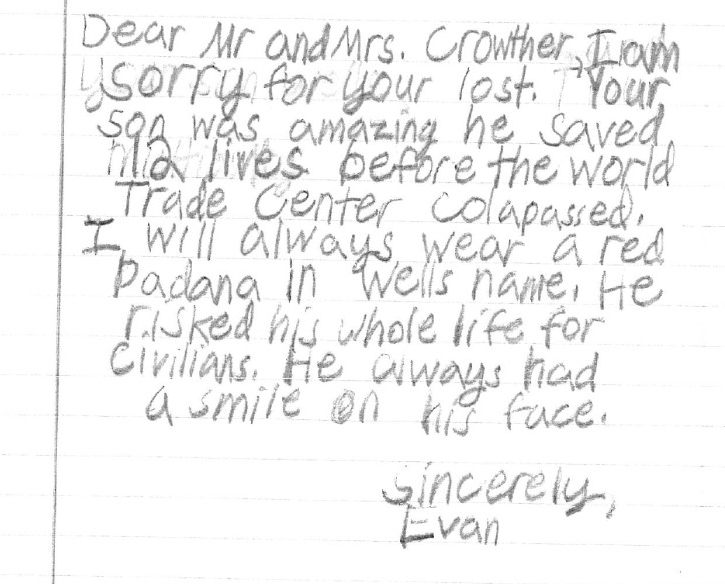 Dear Mr and Mrs. Crowther, I am
sorry for your lost. Your
son was amazing he saved
12 lives before the world
Trade Center colapassed.
I will always wear a red
badana in Wells name. He
risked his whole life for
civilians. He always had
a smile on his face.
Sincerely,
Evan